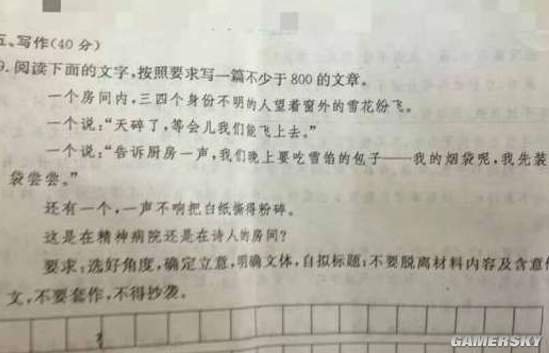 五、写作(40分)
9.阅读下面的文字,按照要求写一篇不少于800的文章。
一个房间内,三四个身份不明的人望着窗外的雪花纷飞。
一个说:“天碎了,等会儿我们能飞上去。”
一个说:“告诉厨房一声,我们晚上要吃雪馅的包子——我的烟袋呢,我先装
袋尝尝。”
还有一个,一声不响把白纸撕得粉碎。
这是在精神病院还是在诗人的房间?
要求:选好角度,确定立意,明确文体,自拟标题;不要脱离材料内容及含意
文,不要套作,不得抄袭。
GAMERSKY